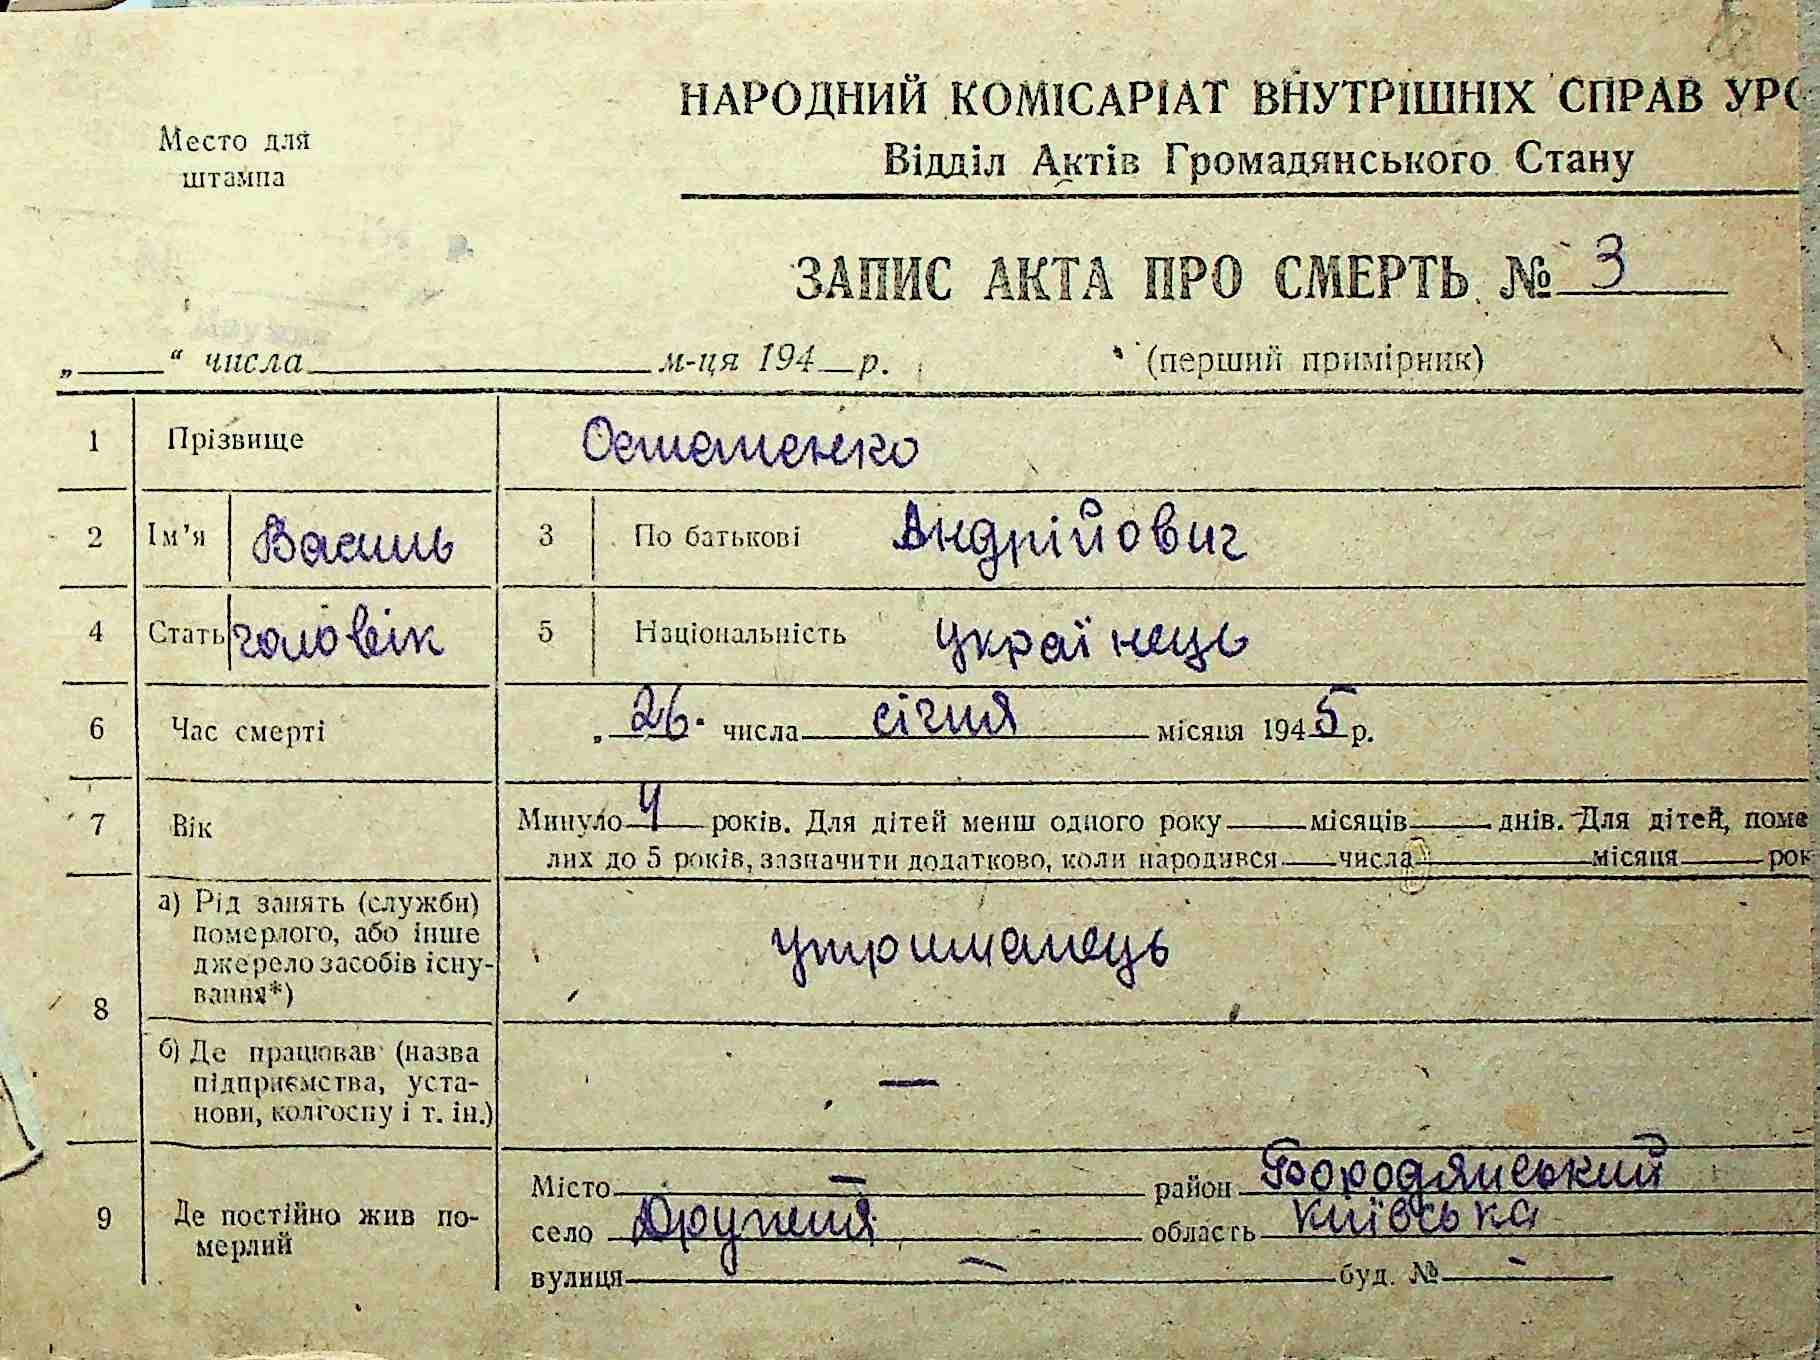 НАРОДНИЙ КОМІСАРІАТ ВНУТРІШНІХ СПРАВ УРС
Место для
штампа
Відділ Актів Громадянського Стану
ЗАПИС АКТА ПРО СМЕРТЬ № 3
„ “ числа м-ця 194 р. (перший примірник)
1 Прізвище Остаменко
2 Ім'я Василь 3 По батькові Андрійович
4 Стать чоловік 5 Національність українець
6 Час смерті „ 26. числа січня місяця 1945 р.
7 Вік Минуло 4 років. Для дітей менш одного року місяців днів. Для дітей, поме
лих до 5 років, зазначити додатково, коли народився числа місяця рок
8 а) Рід занять (служби)
померлого, або інше
джерело засобів існу-
вання*) утриманець
б) Де працював (назва
підприємства, уста-
нови, колгоспу і т. ін.) —
9 Де постійно жив по-
мерлий
Місто — район Бородянський
село Дружня - область Київська
вулиця — буд. № -